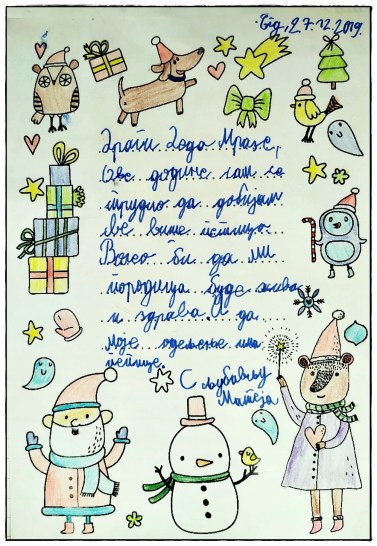 Бгд, 27.12.2019.
Драги Деда Мразе,
Ове године сам се
трудио да добијам
све више петица.
Волео би да ми
породица буде жива
и здрава. И да
моје одељење има
петице.
С љубављу
Матеја